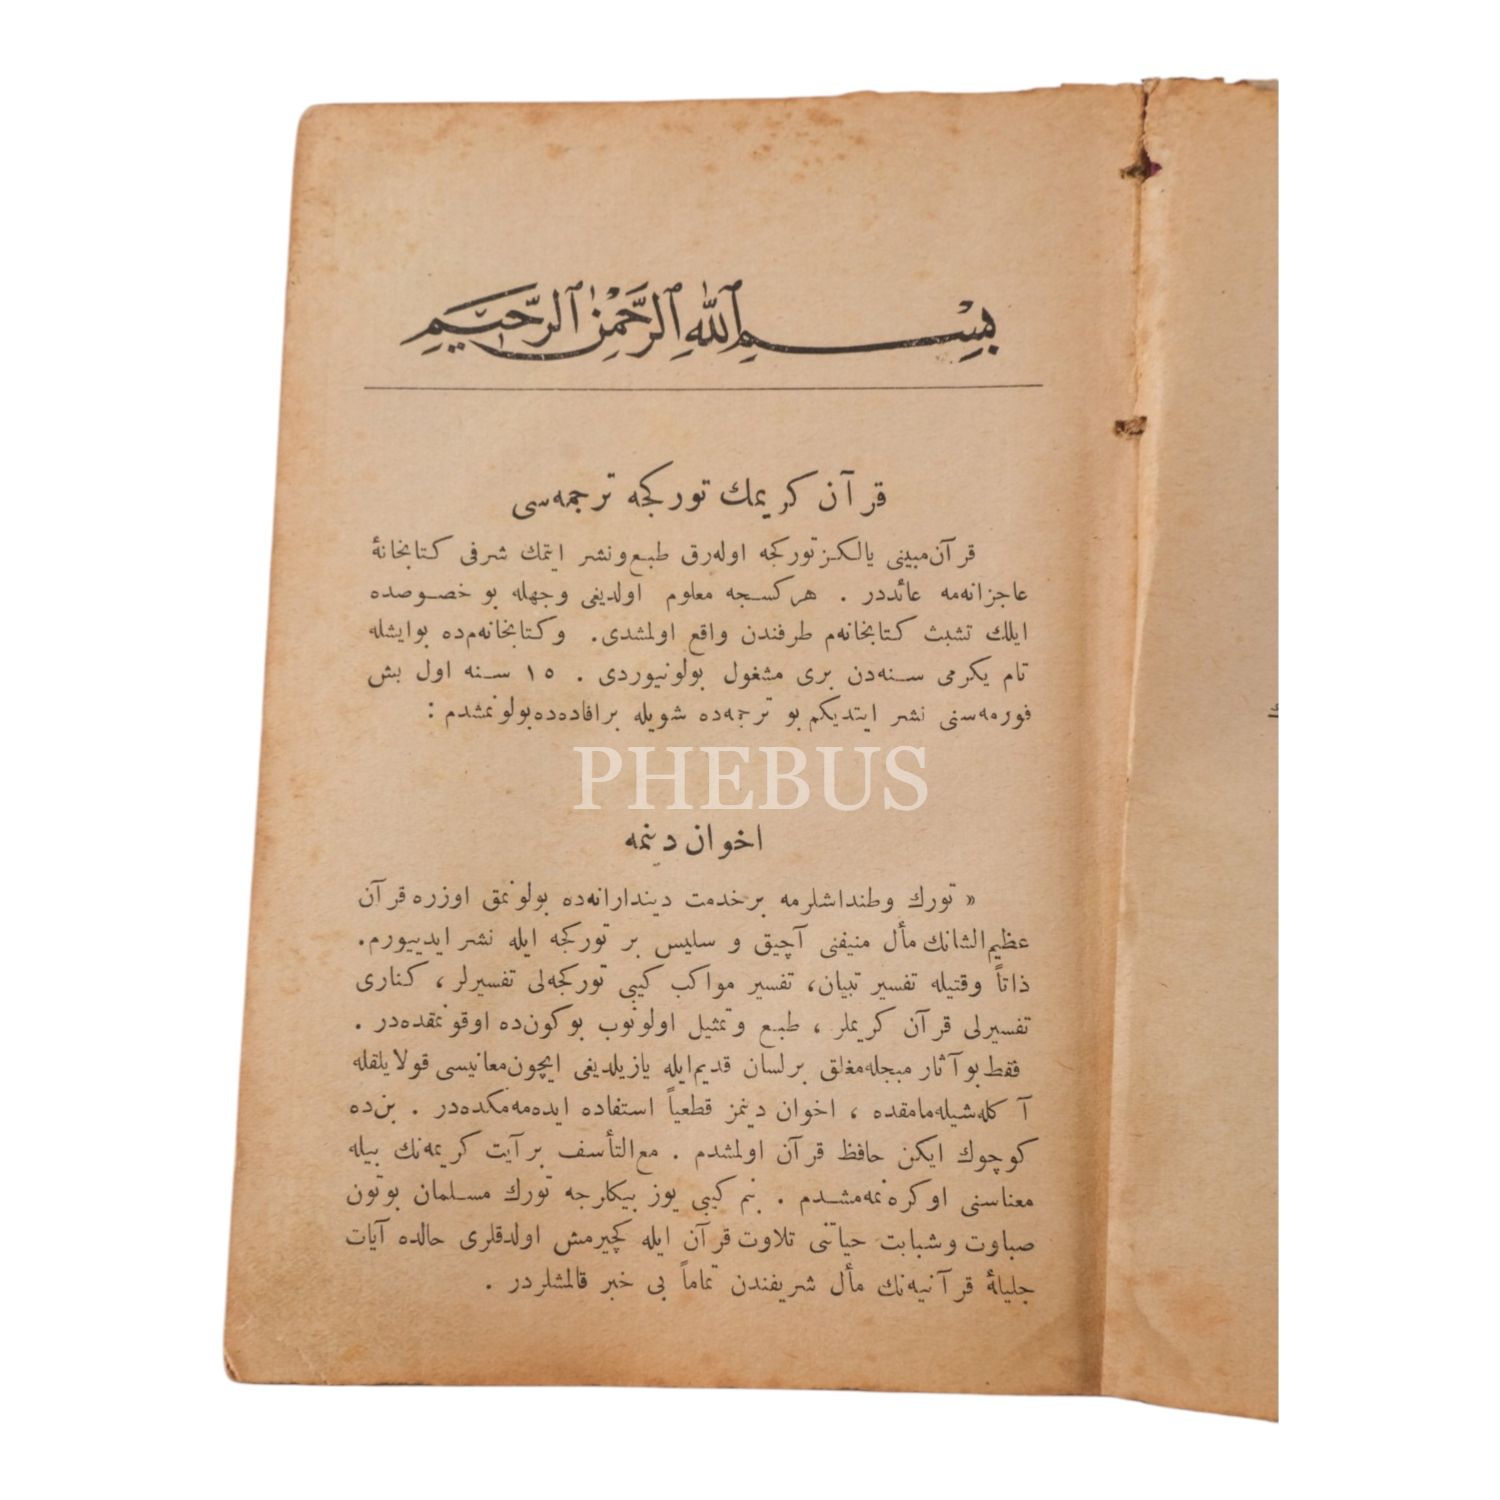 بِسْمِ ٱللّٰهِ ٱلرَّحْمٰنِ ٱلرَّحِيمِ
قرآن كريمك توركجه ترجمه‌سى
قرآن مبينى يالكز توركجه اوله‌رق طبع ونشر ايتمك شرفى كتابخانۀ
عاجزانه‌مه عائددر . هركسجه معلوم اولديغى وجهله بو خصوصده
ايلك تشبث كتابخانه‌م طرفندن واقع اولمشدى. وكتابخانه‌م‌ده بوايشله
تام يكرمى سنه‌دن برى مشغول بولونيوردى . ١٥ سنه اول بش
فورمه‌سنى نشر ايتديكم بو ترجمه‌ده شويله برافاده‌ده بولونمشدم :
PHEBUS
اخوان دينمه
« تورك وطنداشلرمه برخدمت ديندارانه‌ده بولونمق اوزره قرآن
عظيم‌الشانك مأل منيفنى آچيق و سليس بر توركجه ايله نشر ايدييورم.
ذاتاً وقتيله تفسير تبيان، تفسير مواكب كيبى توركجه‌لى تفسيرلر ، كنارى
تفسيرلى قرآن كريملر ، طبع وتمثيل اولونوب بوكون‌ده اوقونمقده‌در .
فقط بو آثار مبجله مغلق برلسان قديم ايله يازيلديغى ايچون معانيسى قولايلقله
آكله‌شيله‌مامقده ، اخوان دينمز قطعياً استفاده ايده‌مه‌مكده‌در . بن‌ده
كوچوك ايكن حافظ قرآن اولمشدم . مع‌التأسف برآيت كريمه‌نك بيله
معناسنى اوكره‌نمه‌مشدم . بنم كيبى يوز بيكلرجه تورك مسلمان بوتون
صباوت وشبابت حياتنى تلاوت قرآن ايله كچيرمش اولدقلرى حالده آيات
جليلۀ قرآنيه‌نك مأل شريفندن تماماً بى خبر قالمشلردر .